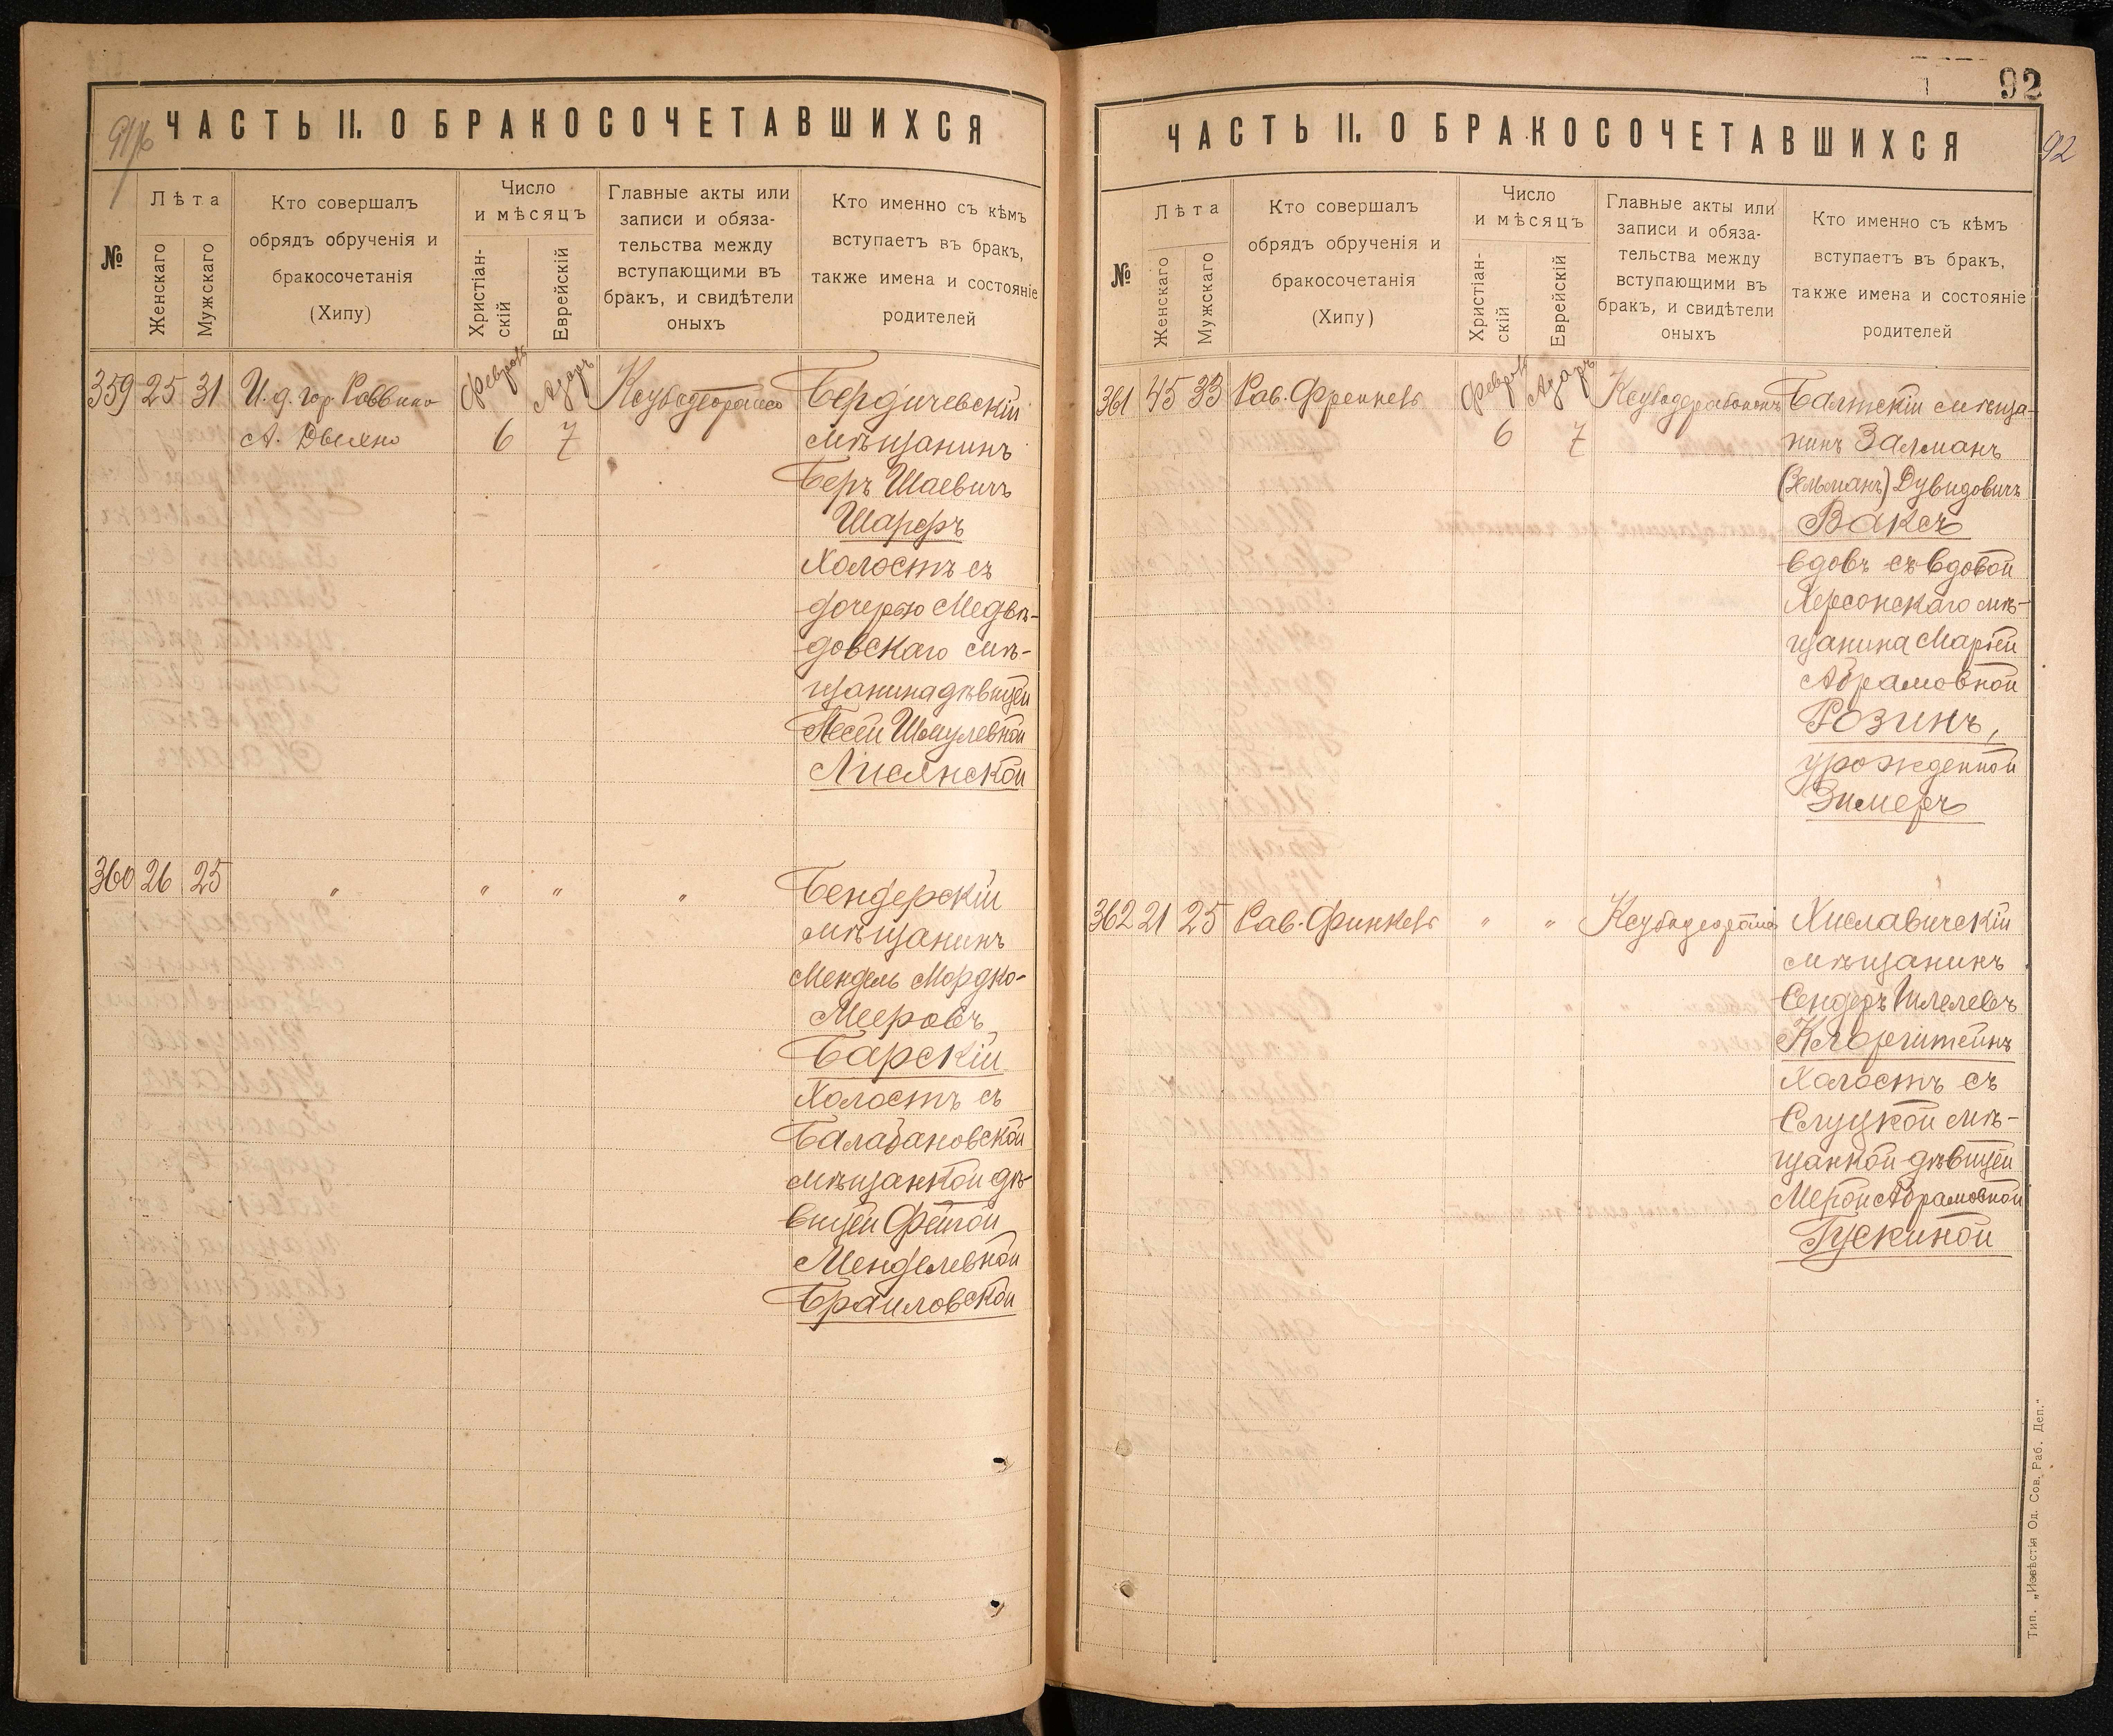 91/б
ЧАСТЬ II. О БРАКОСОЧЕТАВШИХСЯ
№
Лѣта
Женскаго
Мужскаго
Кто совершалъ
обрядъ обрученія и
бракосочетанія
(Хипу)
Число
и мѣсяцъ
Христіан-
скій
Еврейскій
Главные акты или
записи и обяза-
тельства между
вступающими въ
бракъ, и свидѣтели
оныхъ
Кто именно съ кѣмъ
вступаетъ въ бракъ,
также имена и состояніе
родителей
359 25 31 И. д. гор. Раввина Февраль Адаръ Ксубадеорайсо Бердичевскій
А. Двеяно 6 7 мѣщанинъ
Беръ Шаевичъ
Шарфъ
Холостъ съ
дочерью Медвѣ-
довскаго мѣ-
щанина дѣвицей
Песей Шмулевной
Лисянской
360 26 25 " " " " Бендерскій
мѣщанинъ
Мендель Мордко-
Мееровъ
Барскій
Холостъ съ
Балабановской
мѣщанкой дѣ-
вицей Фейгой
Менделевной
Браиловской
92
ЧАСТЬ II. О БРАКОСОЧЕТАВШИХСЯ
92
№
Лѣта
Женскаго
Мужскаго
Кто совершалъ
обрядъ обрученія и
бракосочетанія
(Хипу)
Число
и мѣсяцъ
Христіан-
скій
Еврейскій
Главные акты или
записи и обяза-
тельства между
вступающими въ
бракъ, и свидѣтели
оныхъ
Кто именно съ кѣмъ
вступаетъ въ бракъ,
также имена и состояніе
родителей
361 45 33 Рав. Френкель Февраль Адаръ Ксубаддерабононъ Балтскій мѣща-
6 7 нинъ Залманъ
(Зельманъ) Дувидовичъ
Ваксъ
вдовъ съ вдовой
Херсонскаго мѣ-
щанина Маріей
Абрамовной
Розинъ,
урожденной
Зимеръ
362 21 25 Рав. Финкель " " Ксубадеорайсо Хиславичскій
мѣщанинъ
Сендеръ Шлелевъ
Клорештейнъ
Холостъ съ
Слуцкой мѣ-
щанкой дѣвицей
Мерой Абрамовной
Гускиной
Тип. „Извѣстія Од. Сов. Раб. Деп."